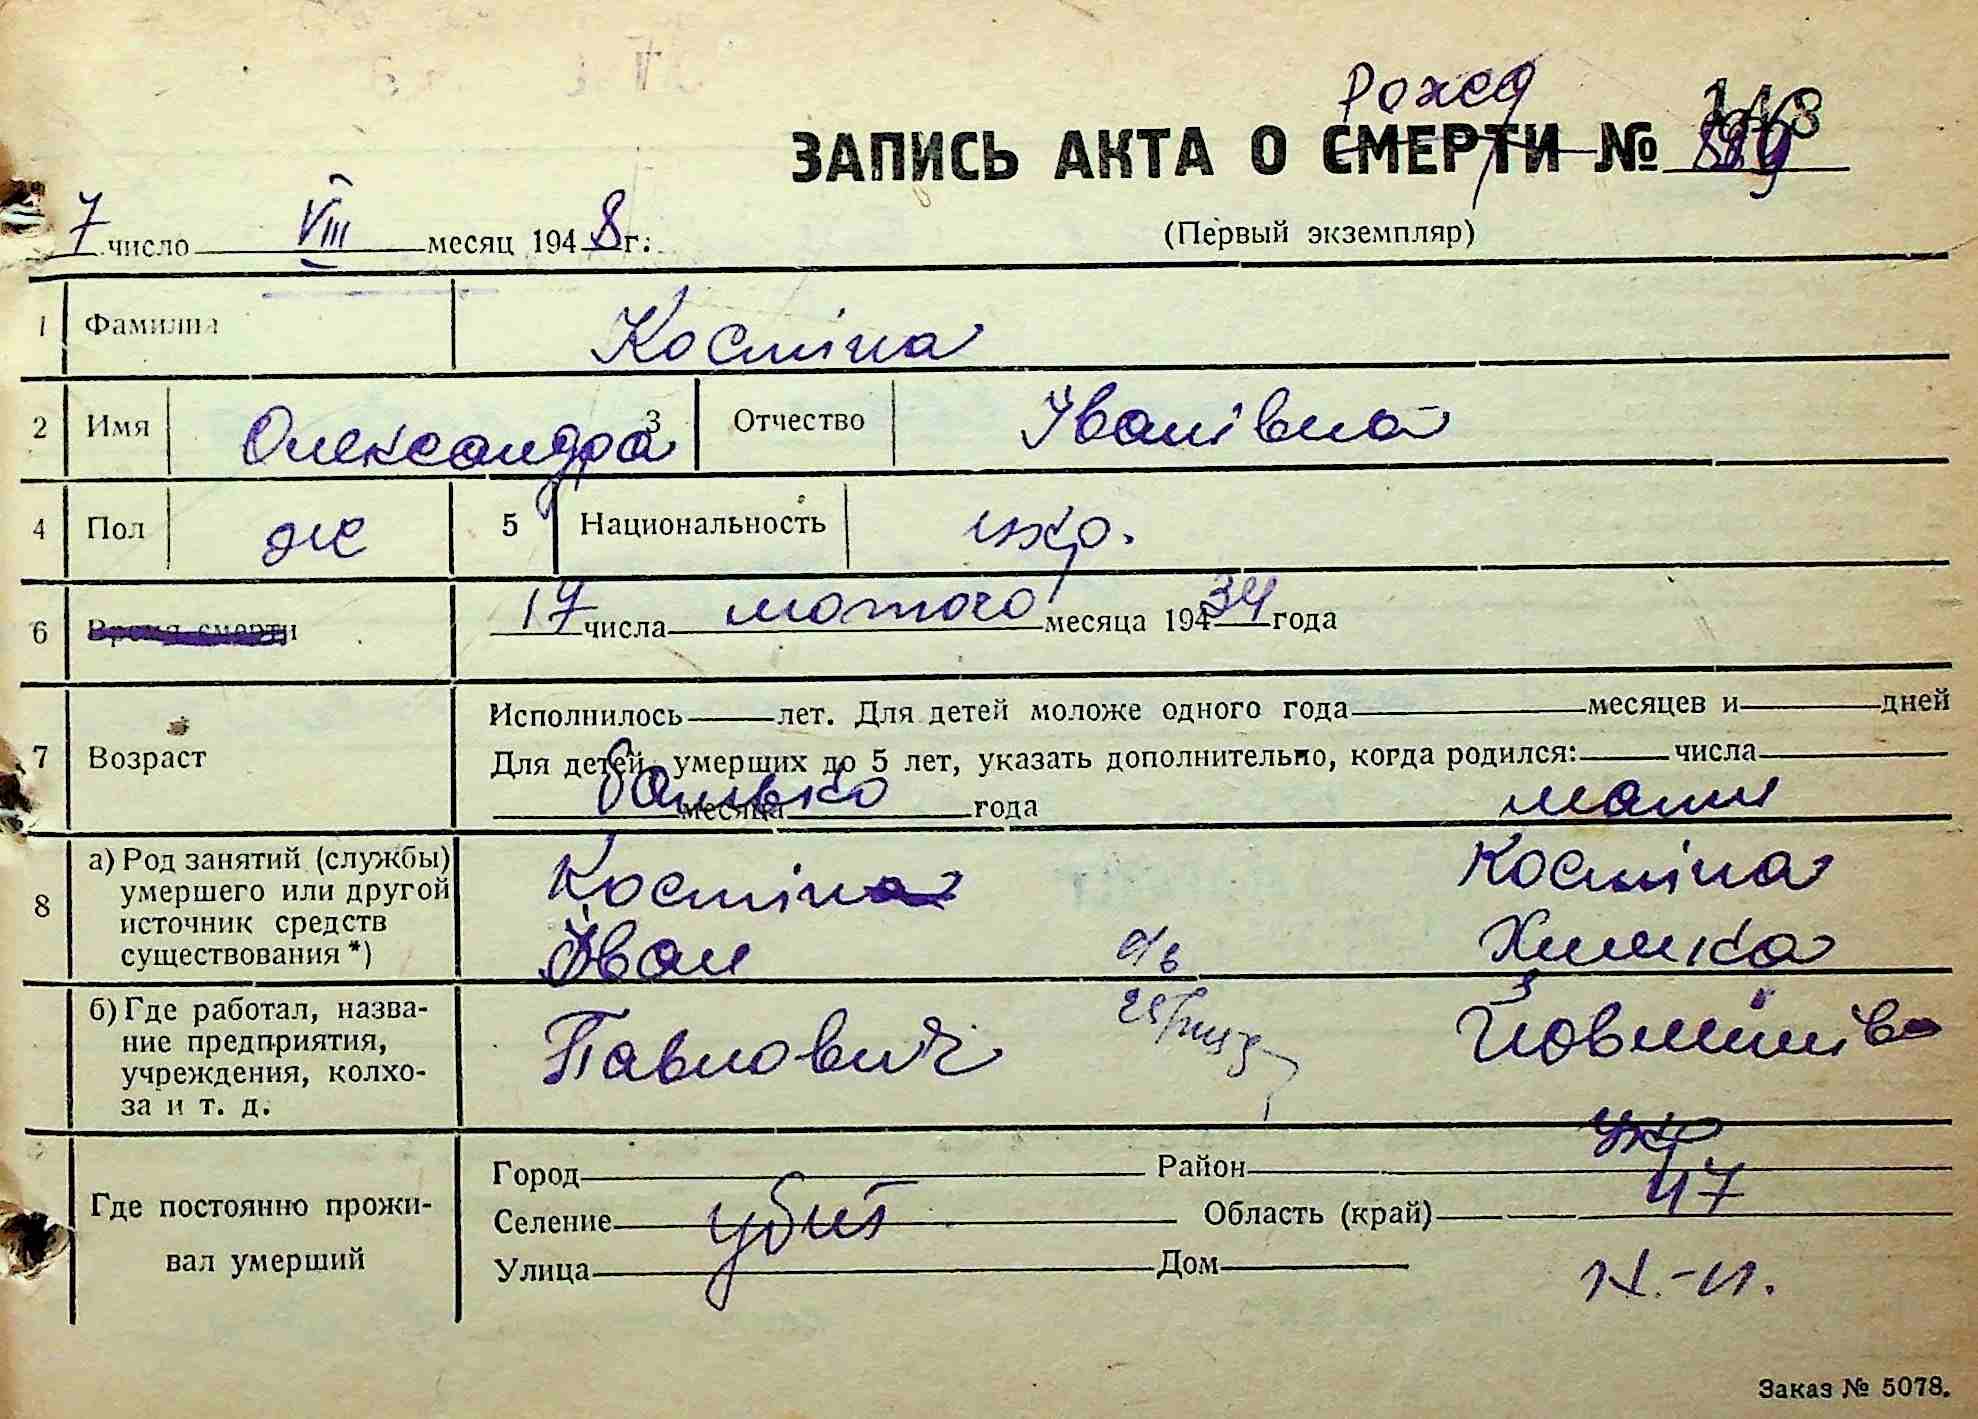 Рожд
ЗАПИСЬ АКТА О СМЕРТИ № 148
(Первый экземпляр)
7 число VIII месяц 1948 г.
1 Фамилия Костіна
2 Имя Олександра 3 Отчество Іванівна
4 Пол ж 5 Национальность укр.
6 Время смерти 17 числа лютого месяца 194 34 года
7 Возраст Исполнилось лет. Для детей моложе одного года месяцев и дней
Для детей, умерших до 5 лет, указать дополнительно, когда родился: числа
месяца года
батько мати
8 а) Род занятий (службы) умершего или другой источник средств существования *)
Костін Костіна
Іван Химка
б) Где работал, название предприятия, учреждения, колхоза и т. д.
Павлович
укр
47
Где постоянно проживал умерший
Город Район
Селение убит Область (край)
Улица Дом
Заказ № 5078.